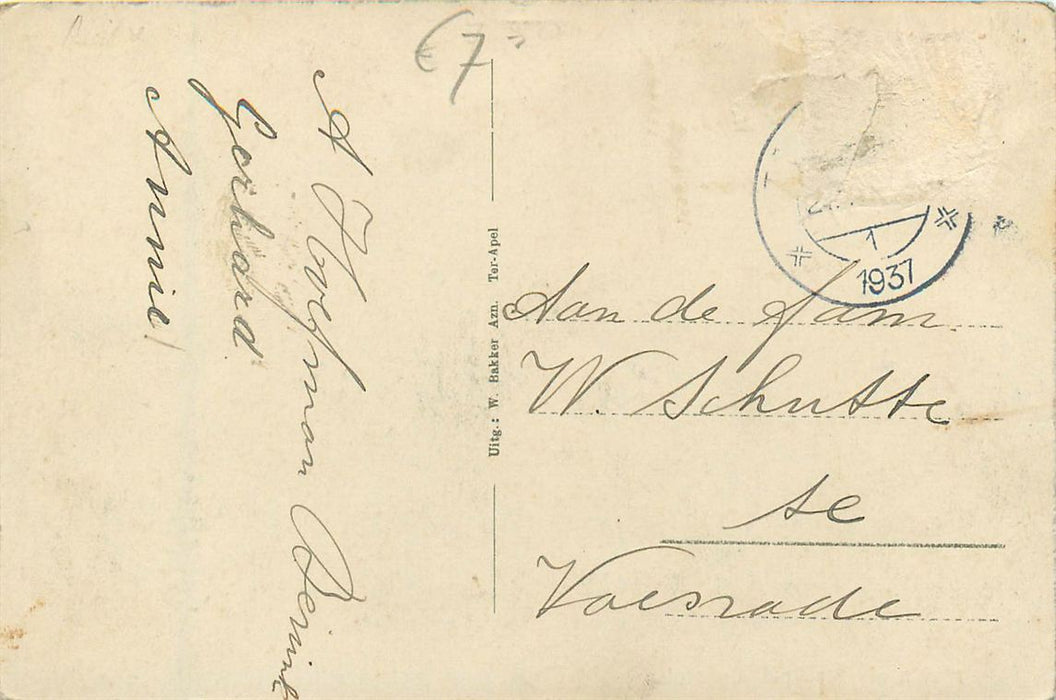 €7
A Hoefman Bernink
Gerhard
Annie
Uitg.: W. Bakker Azn. Ter-Apel
1
1937
Aan de fam.
W. Schutte
te
Voesrade